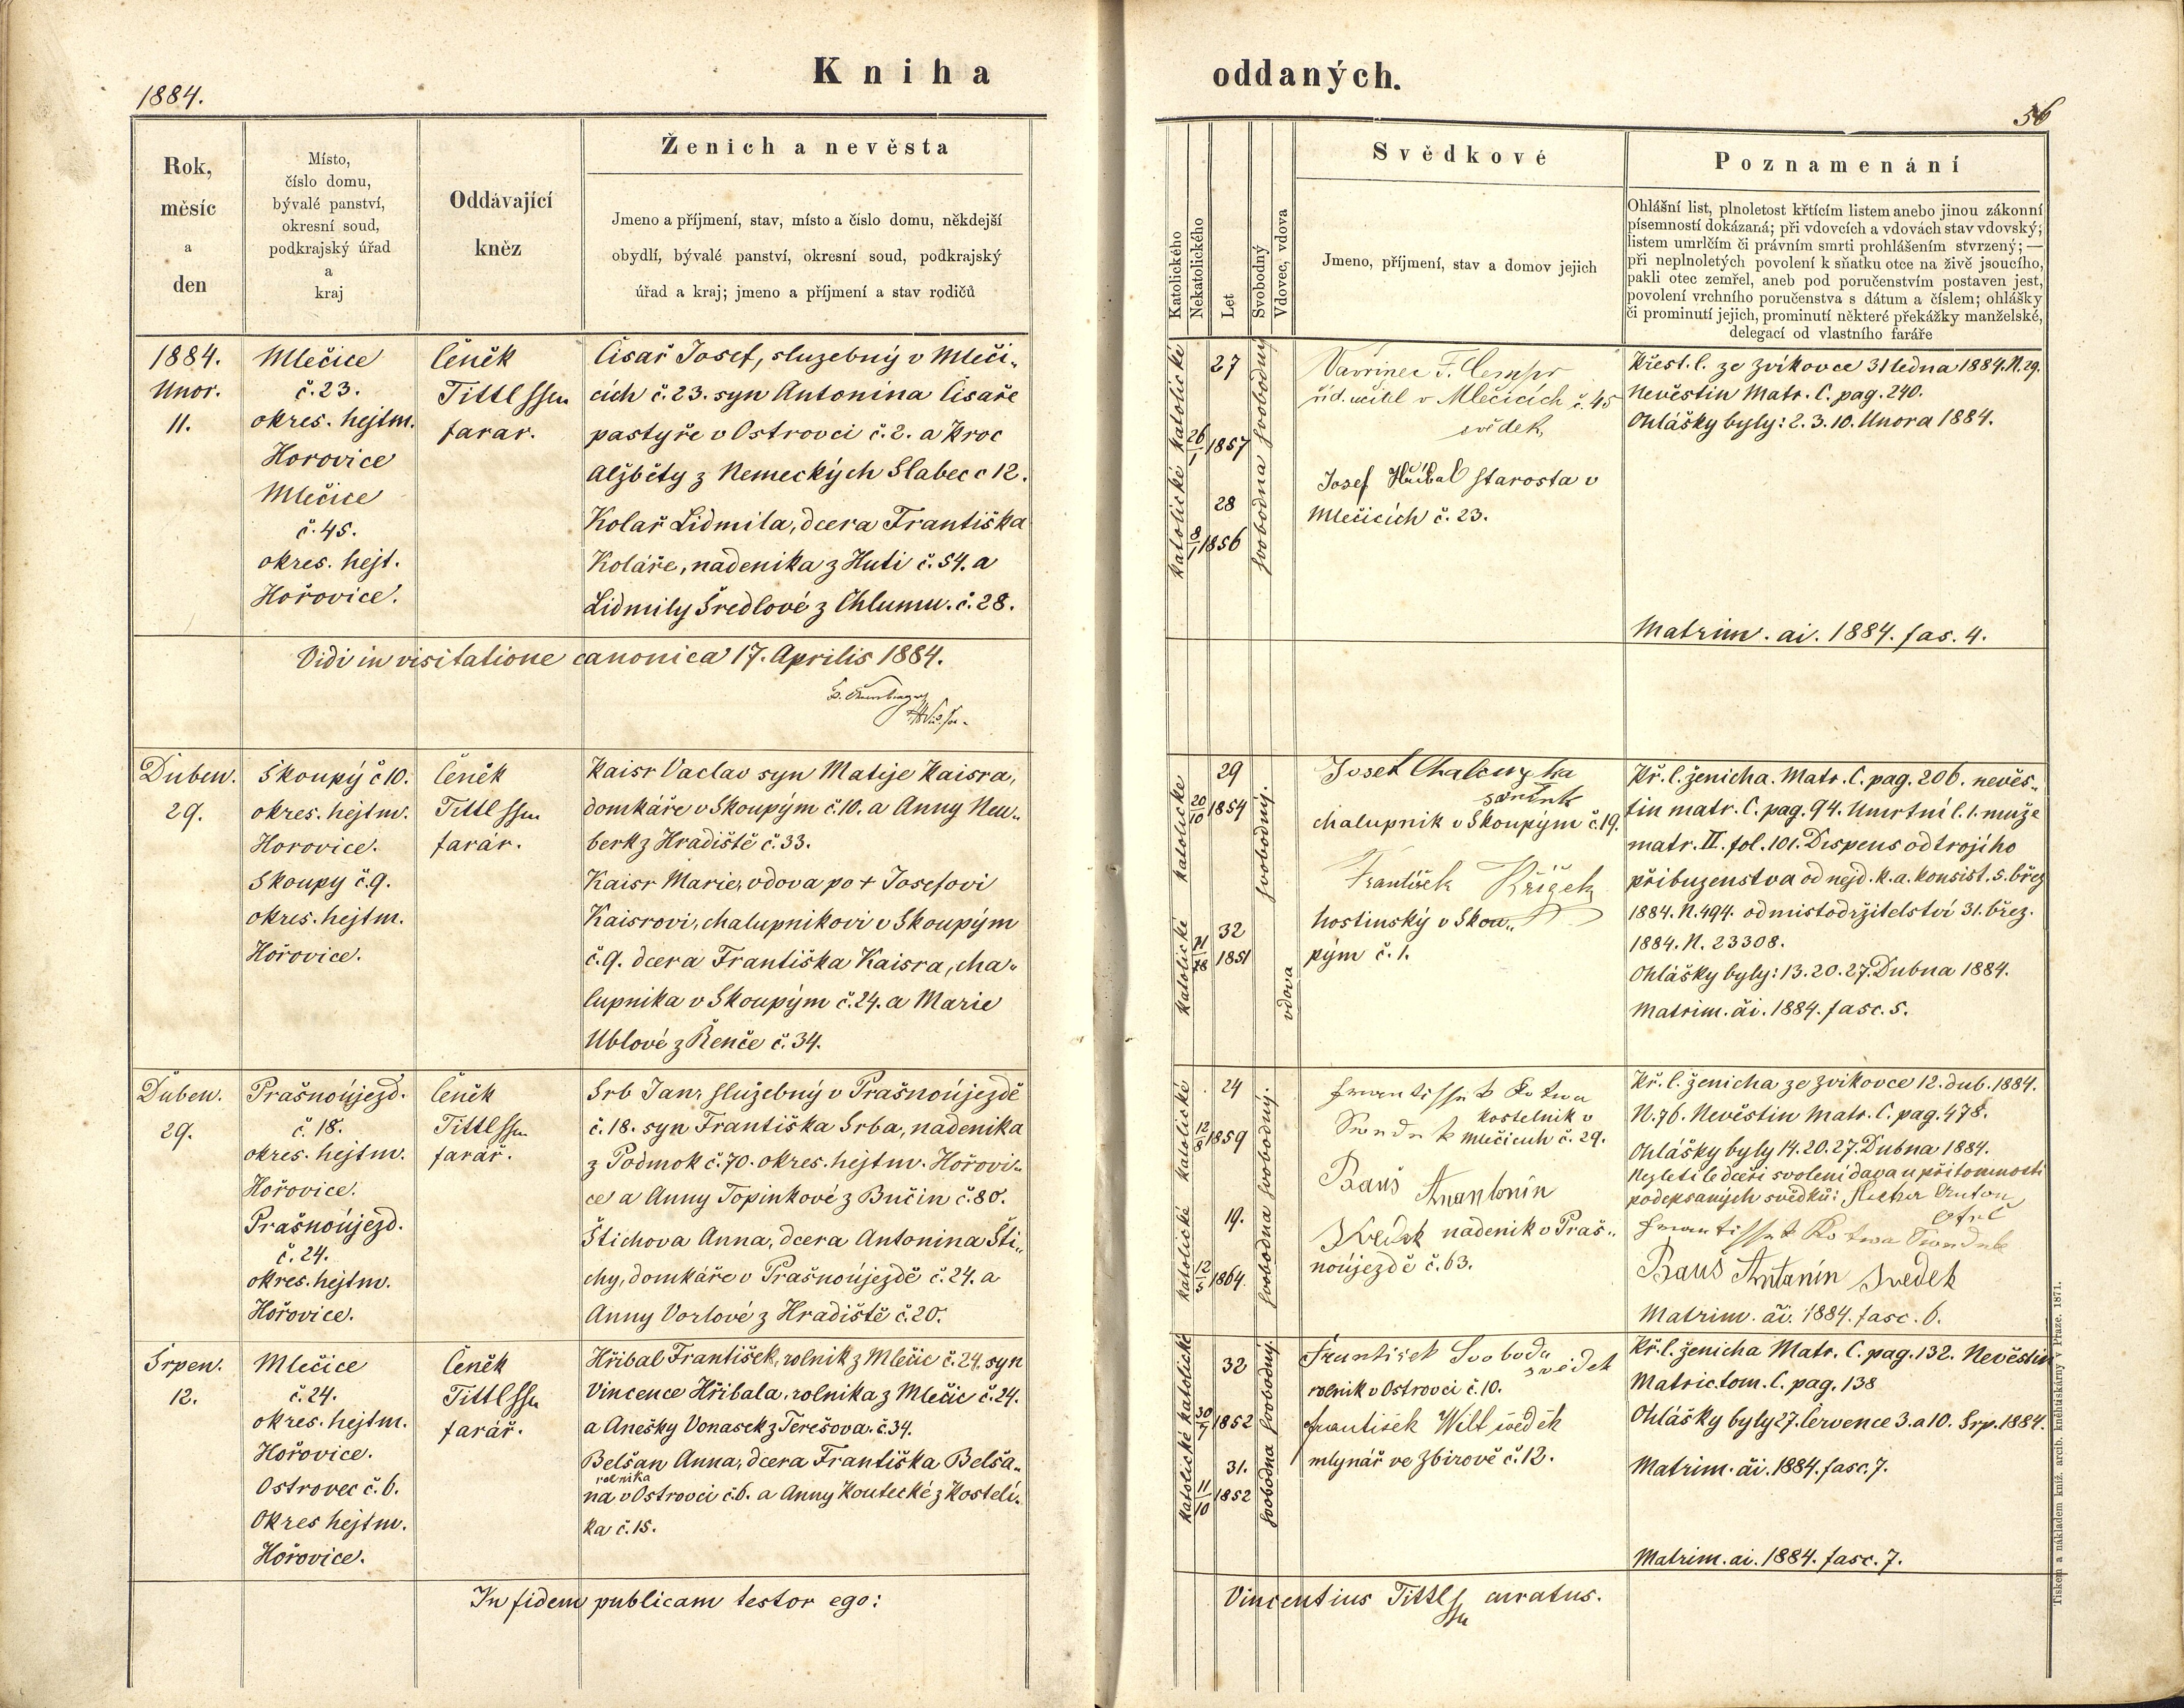 Kniha oddaných.
1884.
56
Rok, měsíc a den
Místo, číslo domu, bývalé panství, okresní soud, podkrajský úřad a kraj
Oddávající kněz
Ženich a nevěsta
Jmeno a příjmení, stav, místo a číslo domu, někdejší
obydlí, bývalé panství, okresní soud, podkrajský
úřad a kraj; jmeno a příjmení a stav rodičů
Katolického
Nekatolického
Let
Svobodný
Vdovec, vdova
Svědkové
Jmeno, příjmení, stav a domov jejich
Poznamenání
Ohlášní list, plnoletost křtícím listem anebo jinou zákonní
písemností dokázaná; při vdovcích a vdovách stav vdovský;
listem umrlčím či právním smrti prohlášením stvrzený; —
při neplnoletých povolení k sňatku otce na živě jsoucího,
pakli otec zemřel, aneb pod poručenstvím postaven jest,
povolení vrchního poručenstva s dátum a číslem; ohlášky
či prominutí jejich, prominutí některé překážky manželské,
delegací od vlastního faráře
1884.
Unor.
11.
Mlečice
č. 23.
okres. hejtm.
Horovice
Mlečice
č. 45.
okres. hejt.
Hořovice.
Čeněk
Tittl
farar.
Čisař Josef, služebný v Mleči„
cích č. 23. syn Antonina Čisaře
pastyře v Ostrovci č. 2. a Kroc
Alžběty z Nemeckých Slabec c 12.
Kolař Lidmila, dcera Františka
Koláře, nadenika z Huti č. 54. a
Lidmily Šredlové z Chlumu. č. 28.
katolické
27
26/1 1857
svobodný
katolické
28
8/1 1856
svobodna
Vavřinec
říd. učitel v Mlečicích č. 45
svědek
Josef Hřibal starosta v
Mlečicích č. 23.
Křest. l. ze Zvíkovce 31 ledna 1884. N. 29.
Nevěstin Matr. C. pag. 240.
Ohlášky byly: 2. 3. 10. Unora 1884.
Matrim. ai. 1884. fas. 4.
Vidi in visitatione canonica 17. Aprilis 1884.
Duben.
29.
Skoupý č 10.
okres. hejtm.
Horovice.
Skoupy č. 9.
okres. hejtm.
Hořovice.
Čeněk
Tittl
farár.
Kaisr Vaclav syn Matěje Kaisra,
domkáře v Skoupým č. 10. a Anny Neu„
berk z Hradiště č. 33.
Kaisr Marie, vdova po + Josefovi
Kaisrovi, chalupnikovi v Skoupým
č. 9. dcera Františka Kaisra, cha„
lupnika v Skoupým č. 24. a Marie
Ublové z Řenče č. 34.
katolické
29
20/10 1854
svobodný.
katolické
32
1851
vdova
Josef
chalupnik v Skoupým č. 19.
František Křížek
hostinský v Skou„
pým č. 1.
Kř. l. ženicha. Matr. C. pag. 206. nevěs„
tin matr. C. pag. 94. Umrtní l. 1. muže
matr. II. fol. 101. Dispens od trojího
přibuzenstva od nejd. k. a. konsist. 5. břez
1884. N. 494. od mistodržitelství 31. břez.
1884. N. 23308.
Ohlášky byly: 13. 20. 27. Dubna 1884.
Matrim. ai. 1884. fasc. 5.
Duben.
29.
Prašnoújezd.
č. 18.
okres. hejtm.
Hořovice.
Prašnoújezd.
č. 24.
okres. hejtm.
Hořovice.
Čeněk
Tittl
farář.
Srb Jan, služebný v Prašnoújezdě
č. 18. syn Františka Srba, nadenika
z Podmok č. 70. okres. hejtm. Hořovi„
ce a Anny Topinkové z Bučin č. 80.
Štichova Anna, dcera Antonina Šti„
chy, domkáře v Prašnoújezdě č. 24. a
Anny Vorlové z Hradiště č. 20.
katolické
24
1859
svobodný.
katolické
19.
12/5 1864.
svobodna
kostelnik v
Mlečicích č. 29.
Bauš Anantonín
Svědek nadenik v Praš„
noújezdě č. 63.
Kř. l. ženicha ze Zvikovce 12. dub. 1884.
N. 76. Nevěstin Matr. C. pag. 478.
Ohlášky byly 14. 20. 27. Dubna 1884.
Nezletilé dceři svolení dava u přitomnosti
podepsaných svědků:
Baus Antanín Svedek
Matrim. ai. 1884. fasc. 6.
Srpen.
12.
Mlečice
č. 24.
okres. hejtm.
Hořovice.
Ostrovec č. 6.
Okres hejtm.
Hořovice.
Čeněk
Tittl
farář.
Hřibal František, rolnik z Mlečic č. 24. syn
Vincence Hřibala, rolnika z Mlečic č. 24.
a Anešky Vonasek z Terešova. č. 34.
Belšan Anna, dcera Františka Belša„
rolnika
na v Ostrovci č. 6. a Anny Koutecké z Kostelí„
ka č. 15.
katolické
32
30/7 1852
svobodný.
katolické
31.
11/10 1852
svobodna
František Svoboda
svědek
rolnik v Ostrovci č. 10.
František Wilt svěděk
mlynář ve Zbirově č. 12.
Kř. l. ženicha Matr. C. pag. 132. Nevěstin
Matric. tom. C. pag. 138
Ohlášky byly 27. Července 3. a 10. Srp. 1884.
Matrim. ai. 1884. fasc. 7.
Matrim. ai. 1884. fasc. 7.
In fidem publicam testor ego: Vincentius Tittl curatus.
Tiskem a nákladem kníž. arcib. kněhtiskárny v Praze. 1871.